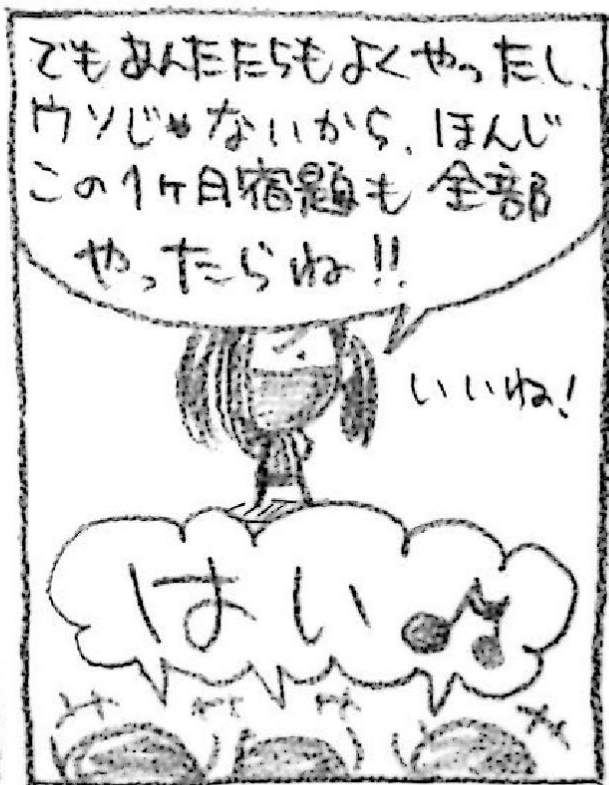 でもあんたたちもよくやったし、
ウソじゃないから、ほんじ
この1ヶ月宿題も全部
やったらね!!
いいね!
はい♪